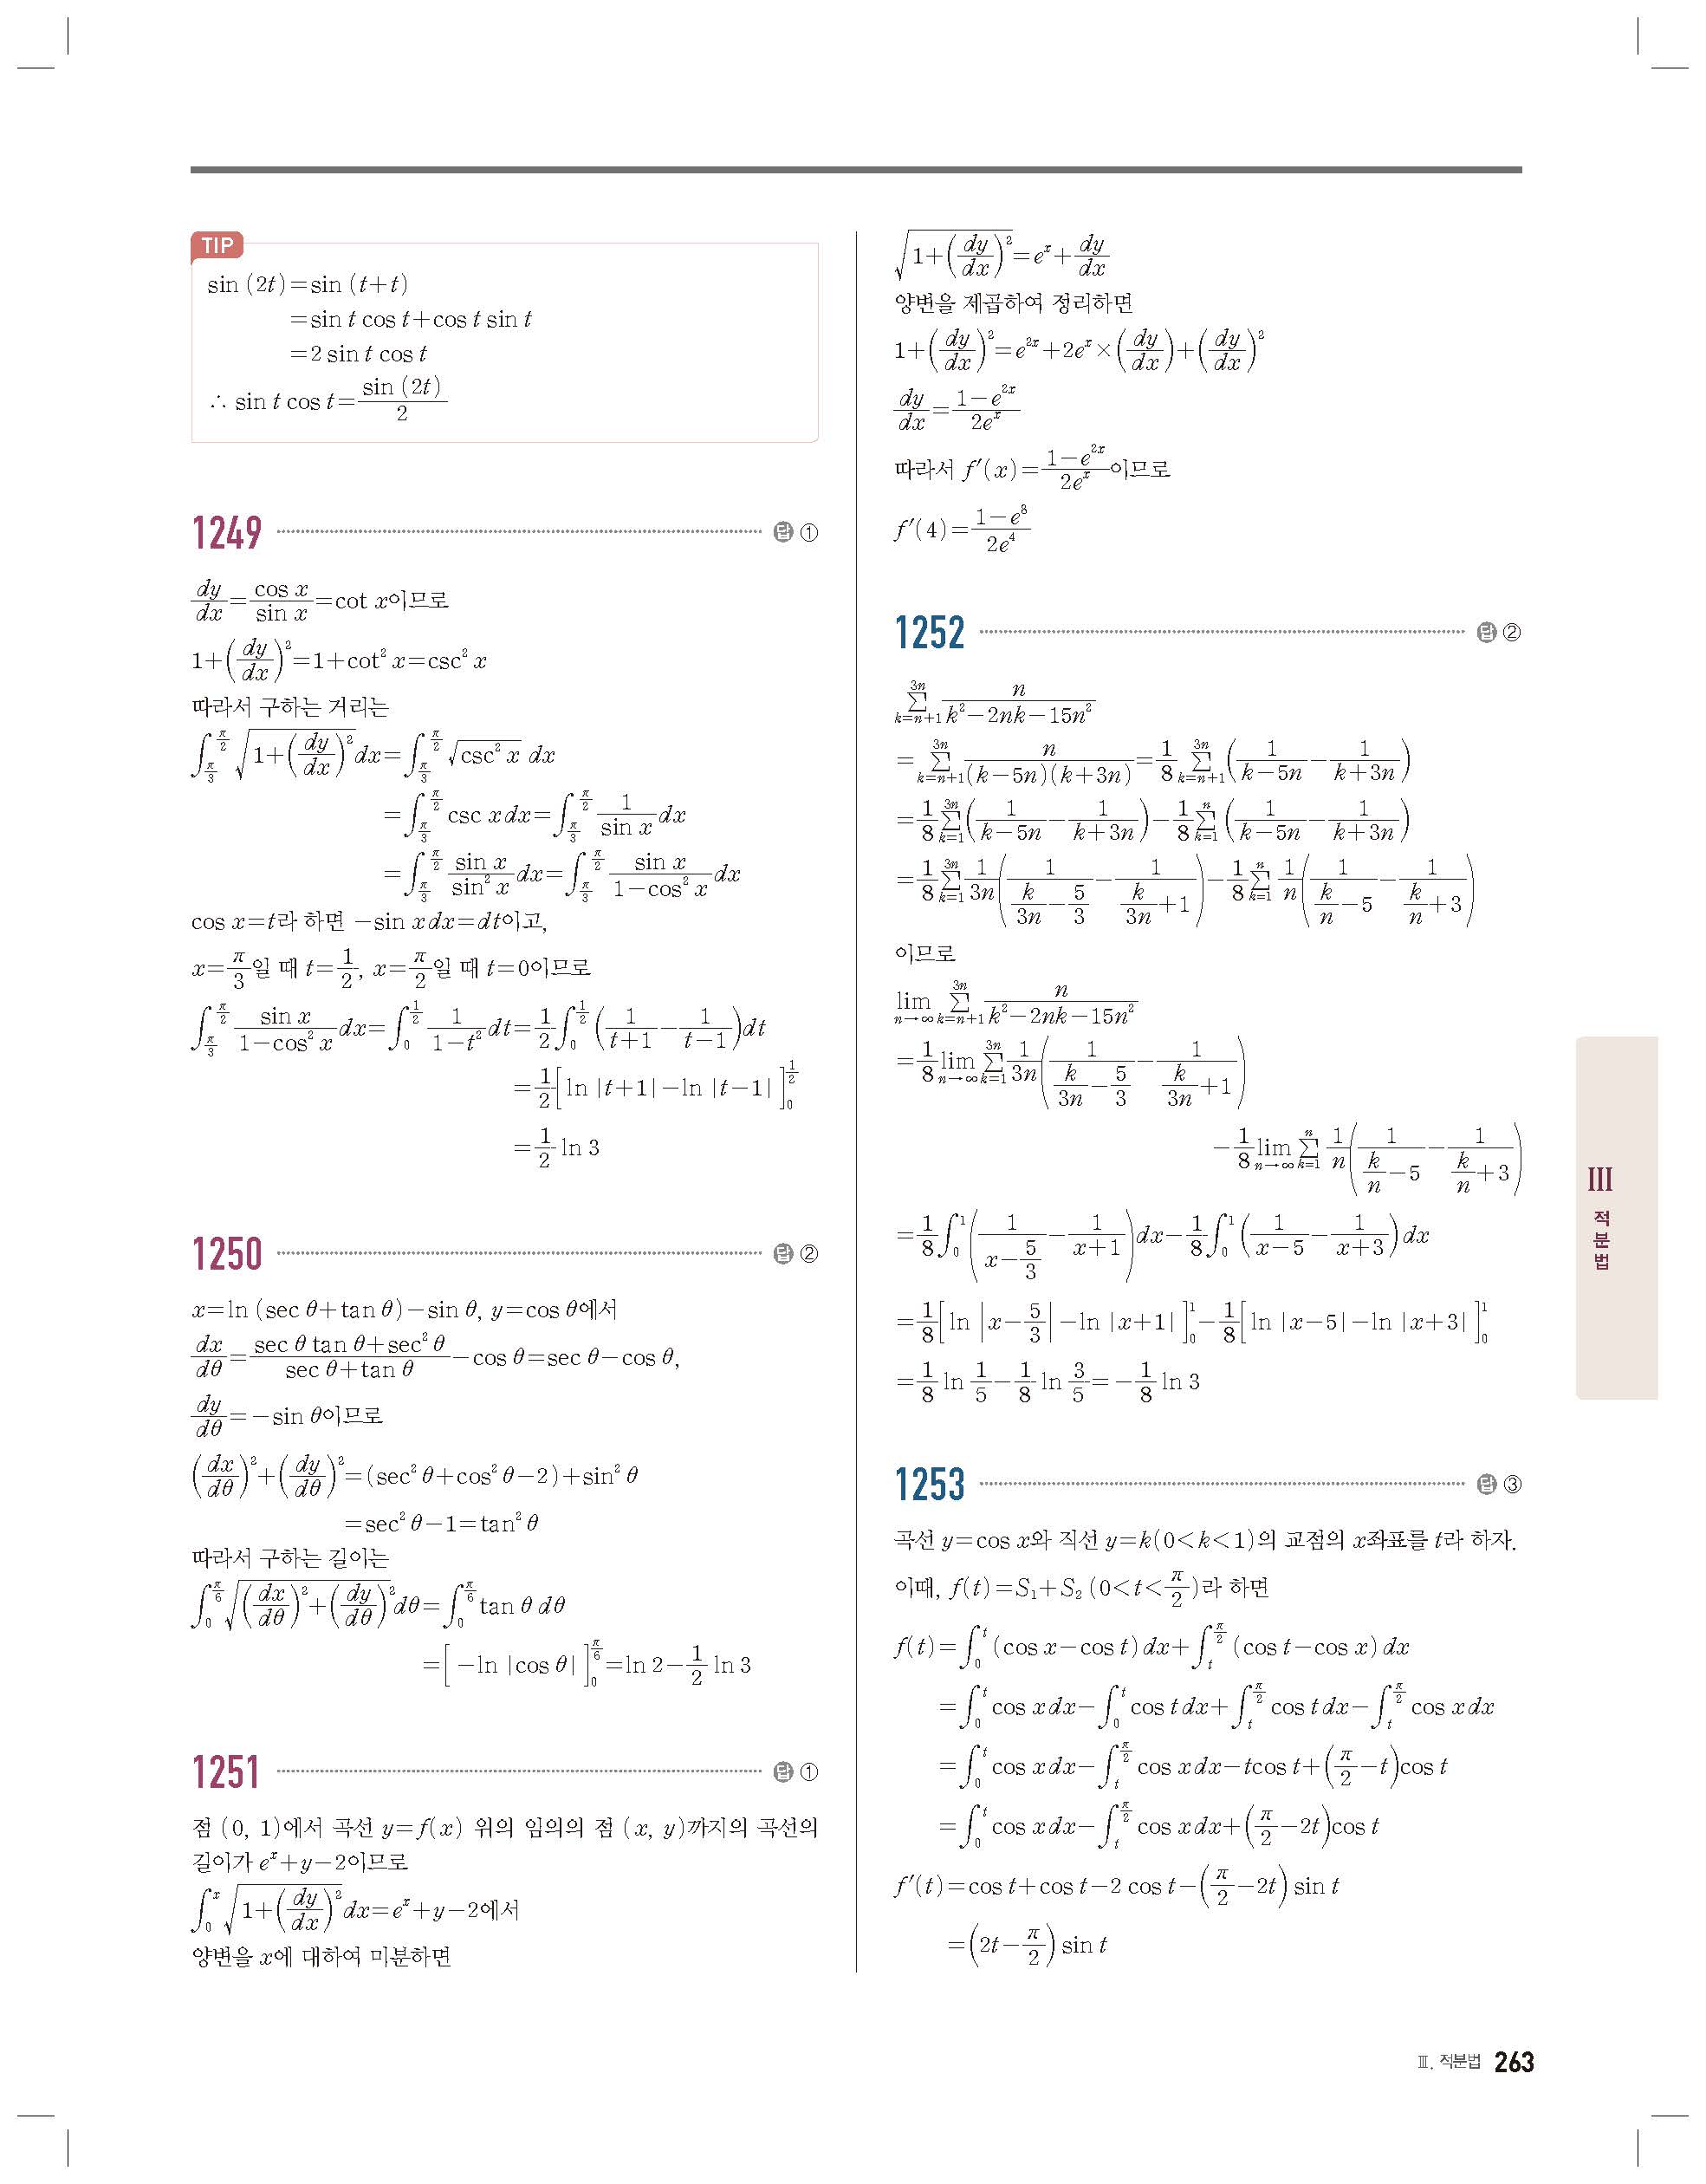 TIP
sin (2t)=sin (t+t)
=sin t cos t+cos t sin t
=2 sin t cos t
∴ sin t cos t=\frac{sin (2t)}{2}
1249 답 ①
\frac{dy}{dx}=\frac{cos x}{sin x}=cot x이므로
1+(\frac{dy}{dx})^2=1+cot^2 x=csc^2 x
따라서 구하는 거리는
∫_{\frac{π}{3}}^{\frac{π}{2}} \sqrt{1+(\frac{dy}{dx})^2}dx=∫_{\frac{π}{3}}^{\frac{π}{2}} \sqrt{csc^2 x} dx
=∫_{\frac{π}{3}}^{\frac{π}{2}} csc xdx=∫_{\frac{π}{3}}^{\frac{π}{2}} \frac{1}{sin x}dx
=∫_{\frac{π}{3}}^{\frac{π}{2}} \frac{sin x}{sin^2 x}dx=∫_{\frac{π}{3}}^{\frac{π}{2}} \frac{sin x}{1-cos^2 x}dx
cos x=t라 하면 -sin xdx=dt이고,
x=\frac{π}{3}일 때 t=\frac{1}{2}, x=\frac{π}{2}일 때 t=0이므로
∫_{\frac{π}{3}}^{\frac{π}{2}} \frac{sin x}{1-cos^2 x}dx=∫_0^{\frac{1}{2}} \frac{1}{1-t^2}dt=\frac{1}{2}∫_0^{\frac{1}{2}} (\frac{1}{t+1}-\frac{1}{t-1})dt
=\frac{1}{2}[ln |t+1|-ln |t-1|]_0^{\frac{1}{2}}
=\frac{1}{2} ln 3
1250 답 ②
x=ln (sec θ+tan θ)-sin θ, y=cos θ에서
\frac{dx}{dθ}=\frac{sec θ tan θ+sec^2 θ}{sec θ+tan θ}-cos θ=sec θ-cos θ,
\frac{dy}{dθ}=-sin θ이므로
(\frac{dx}{dθ})^2+(\frac{dy}{dθ})^2=(sec^2 θ+cos^2 θ-2)+sin^2 θ
=sec^2 θ-1=tan^2 θ
따라서 구하는 길이는
∫_0^{\frac{π}{6}} \sqrt{(\frac{dx}{dθ})^2+(\frac{dy}{dθ})^2}dθ=∫_0^{\frac{π}{6}} tan θ dθ
=[-ln |cos θ|]_0^{\frac{π}{6}}=ln 2-\frac{1}{2} ln 3
1251 답 ①
점 (0, 1)에서 곡선 y=f(x) 위의 임의의 점 (x, y)까지의 곡선의
길이가 e^x+y-2이므로
∫_0^x \sqrt{1+(\frac{dy}{dx})^2}dx=e^x+y-2에서
양변을 x에 대하여 미분하면
\sqrt{1+(\frac{dy}{dx})^2}=e^x+\frac{dy}{dx}
양변을 제곱하여 정리하면
1+(\frac{dy}{dx})^2=e^{2x}+2e^x×(\frac{dy}{dx})+(\frac{dy}{dx})^2
\frac{dy}{dx}=\frac{1-e^{2x}}{2e^x}
따라서 f′(x)=\frac{1-e^{2x}}{2e^x}이므로
f′(4)=\frac{1-e^8}{2e^4}
1252 답 ②
∑_{k=n+1}^{3n} \frac{n}{k^2-2nk-15n^2}
=∑_{k=n+1}^{3n} \frac{n}{(k-5n)(k+3n)}=\frac{1}{8} ∑_{k=n+1}^{3n} (\frac{1}{k-5n}-\frac{1}{k+3n})
=\frac{1}{8} ∑_{k=1}^{3n} (\frac{1}{k-5n}-\frac{1}{k+3n})-\frac{1}{8} ∑_{k=1}^{n} (\frac{1}{k-5n}-\frac{1}{k+3n})
=\frac{1}{8} ∑_{k=1}^{3n} \frac{1}{3n}(\frac{1}{\frac{k}{3n}-\frac{5}{3}}-\frac{1}{\frac{k}{3n}+1})-\frac{1}{8} ∑_{k=1}^{n} \frac{1}{n}(\frac{1}{\frac{k}{n}-5}-\frac{1}{\frac{k}{n}+3})
이므로
lim_{n→∞} ∑_{k=n+1}^{3n} \frac{n}{k^2-2nk-15n^2}
=\frac{1}{8} lim_{n→∞} ∑_{k=1}^{3n} \frac{1}{3n}(\frac{1}{\frac{k}{3n}-\frac{5}{3}}-\frac{1}{\frac{k}{3n}+1})
-\frac{1}{8} lim_{n→∞} ∑_{k=1}^{n} \frac{1}{n}(\frac{1}{\frac{k}{n}-5}-\frac{1}{\frac{k}{n}+3})
=\frac{1}{8}∫_0^1 (\frac{1}{x-\frac{5}{3}}-\frac{1}{x+1})dx-\frac{1}{8}∫_0^1 (\frac{1}{x-5}-\frac{1}{x+3})dx
=\frac{1}{8}[ln |x-\frac{5}{3}|-ln |x+1|]_0^1-\frac{1}{8}[ln |x-5|-ln |x+3|]_0^1
=\frac{1}{8} ln \frac{1}{5}-\frac{1}{8} ln \frac{3}{5}=-\frac{1}{8} ln 3
1253 답 ③
곡선 y=cos x와 직선 y=k(0<k<1)의 교점의 x좌표를 t라 하자.
이때, f(t)=S_1+S_2 (0<t<\frac{π}{2})라 하면
f(t)=∫_0^t (cos x-cos t)dx+∫_t^{\frac{π}{2}} (cos t-cos x)dx
=∫_0^t cos xdx-∫_0^t cos tdx+∫_t^{\frac{π}{2}} cos tdx-∫_t^{\frac{π}{2}} cos xdx
=∫_0^t cos xdx-∫_t^{\frac{π}{2}} cos xdx-tcos t+(\frac{π}{2}-t)cos t
=∫_0^t cos xdx-∫_t^{\frac{π}{2}} cos xdx+(\frac{π}{2}-2t)cos t
f′(t)=cos t+cos t-2 cos t-(\frac{π}{2}-2t) sin t
=(2t-\frac{π}{2}) sin t
Ⅲ
적분법
Ⅲ. 적분법 263